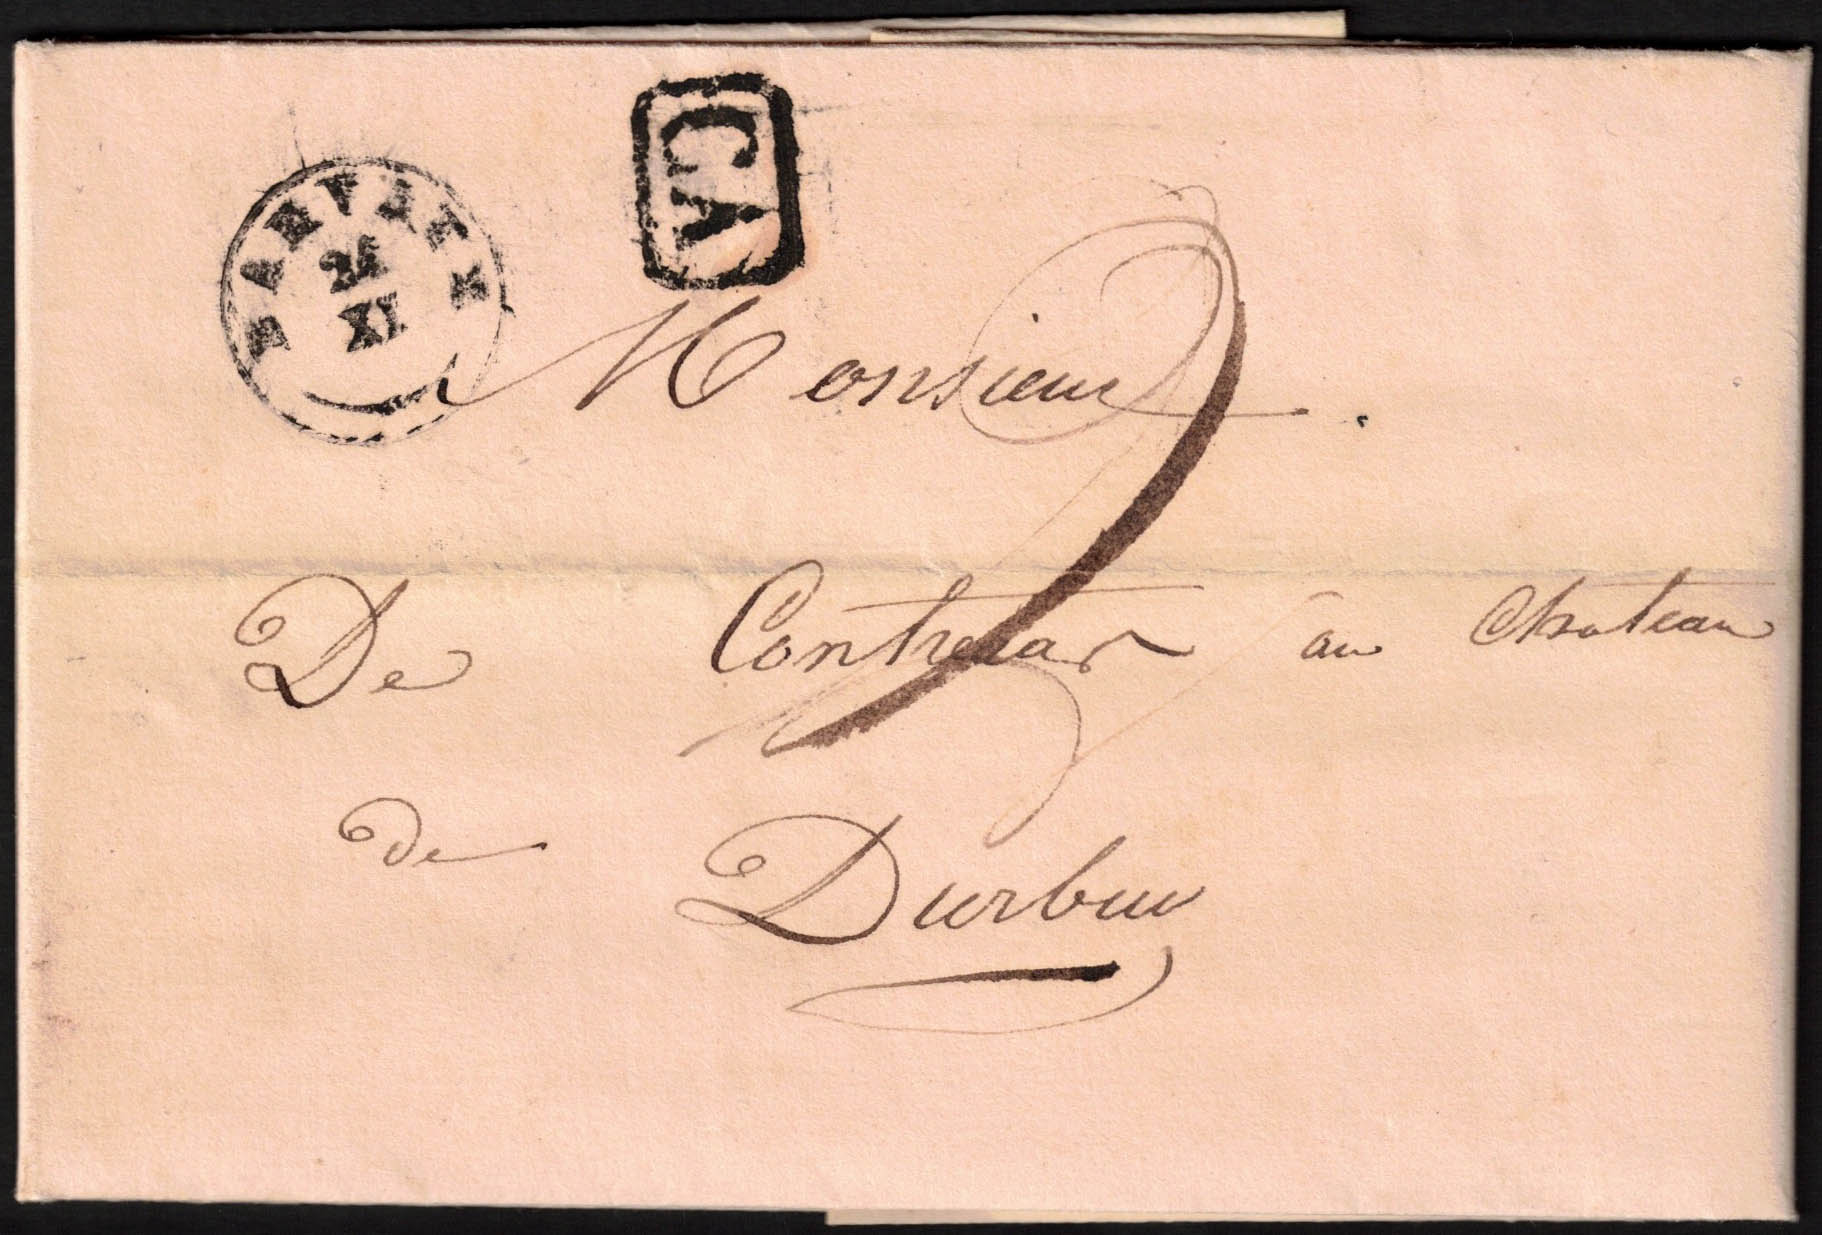 BARVAUX
26
XI
CA
Monsieur
2
De Contreras au chateau
de Durbuy